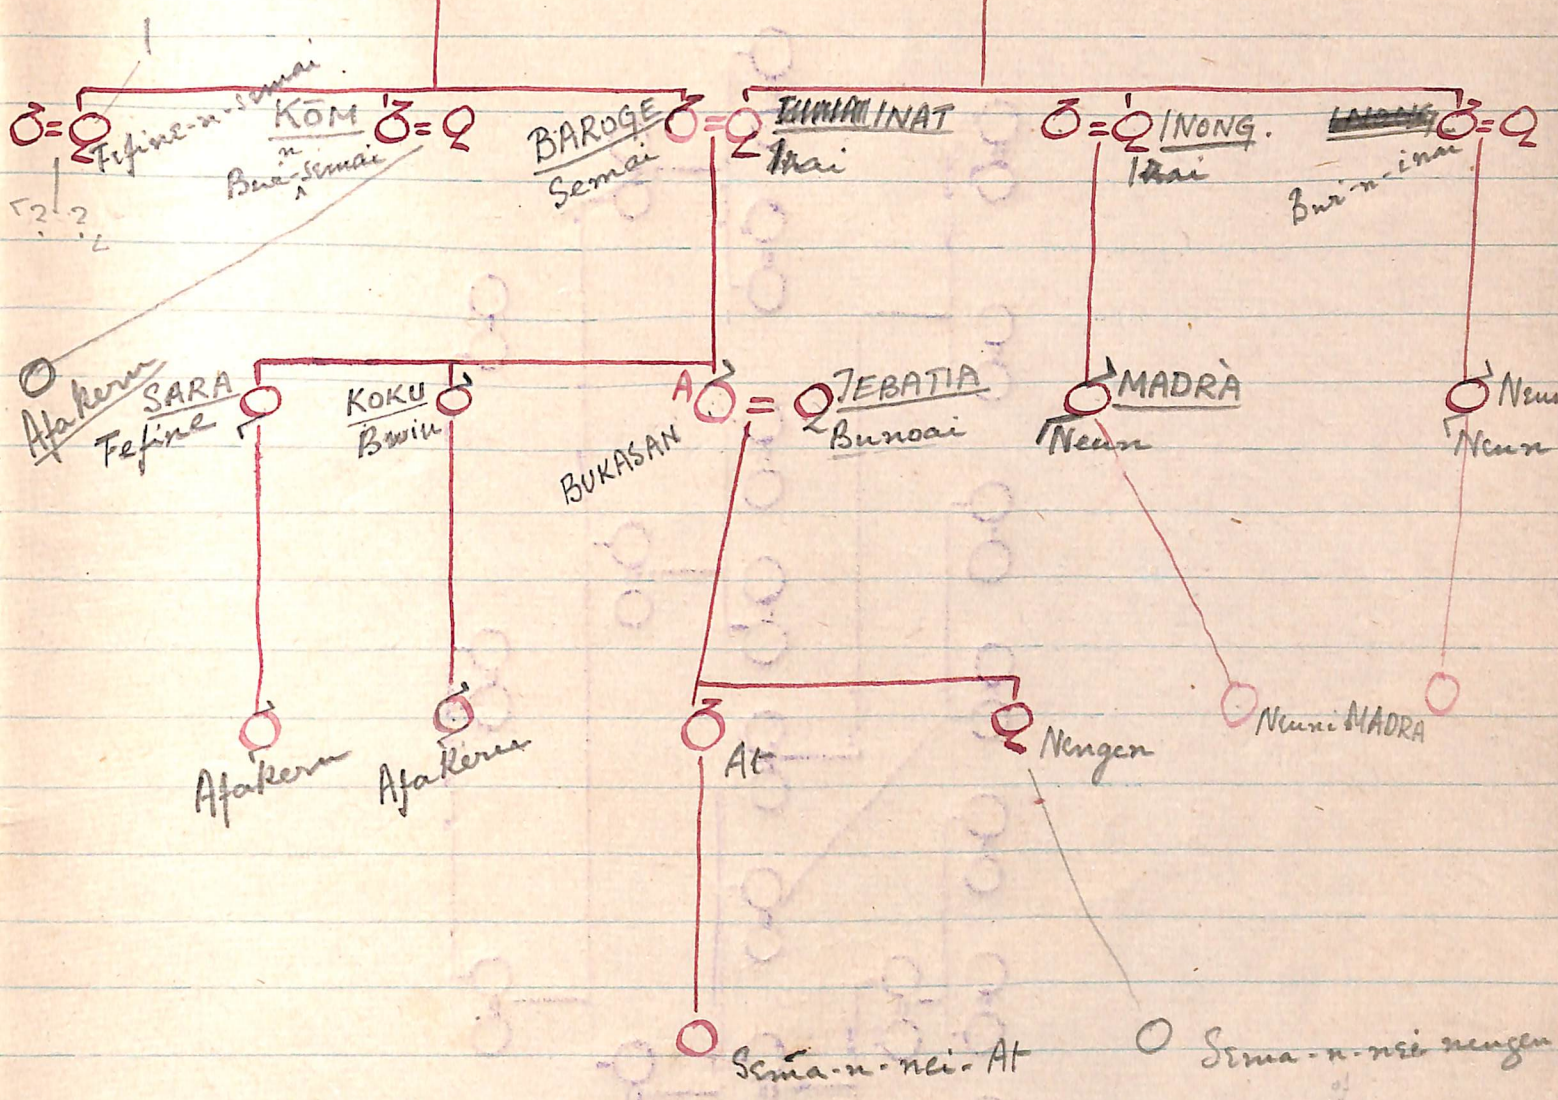 Fefine-n-semai
KŌM
Bui-n-semai
BAROGE
Semai
INAT
Inai
INONG.
Inai
INONG
Bui-n-inai
? ?
Afakeru
SARA
Fefine
KOKU
Bwiu
A
BUKASAN
JEBATIA
Bunoai
MADRÀ
Neun
Neun
Afakeru
Afakeru
At
Nengen
Neuni MADRA
Sema-n-nei-At
Sema-n-nei nengen